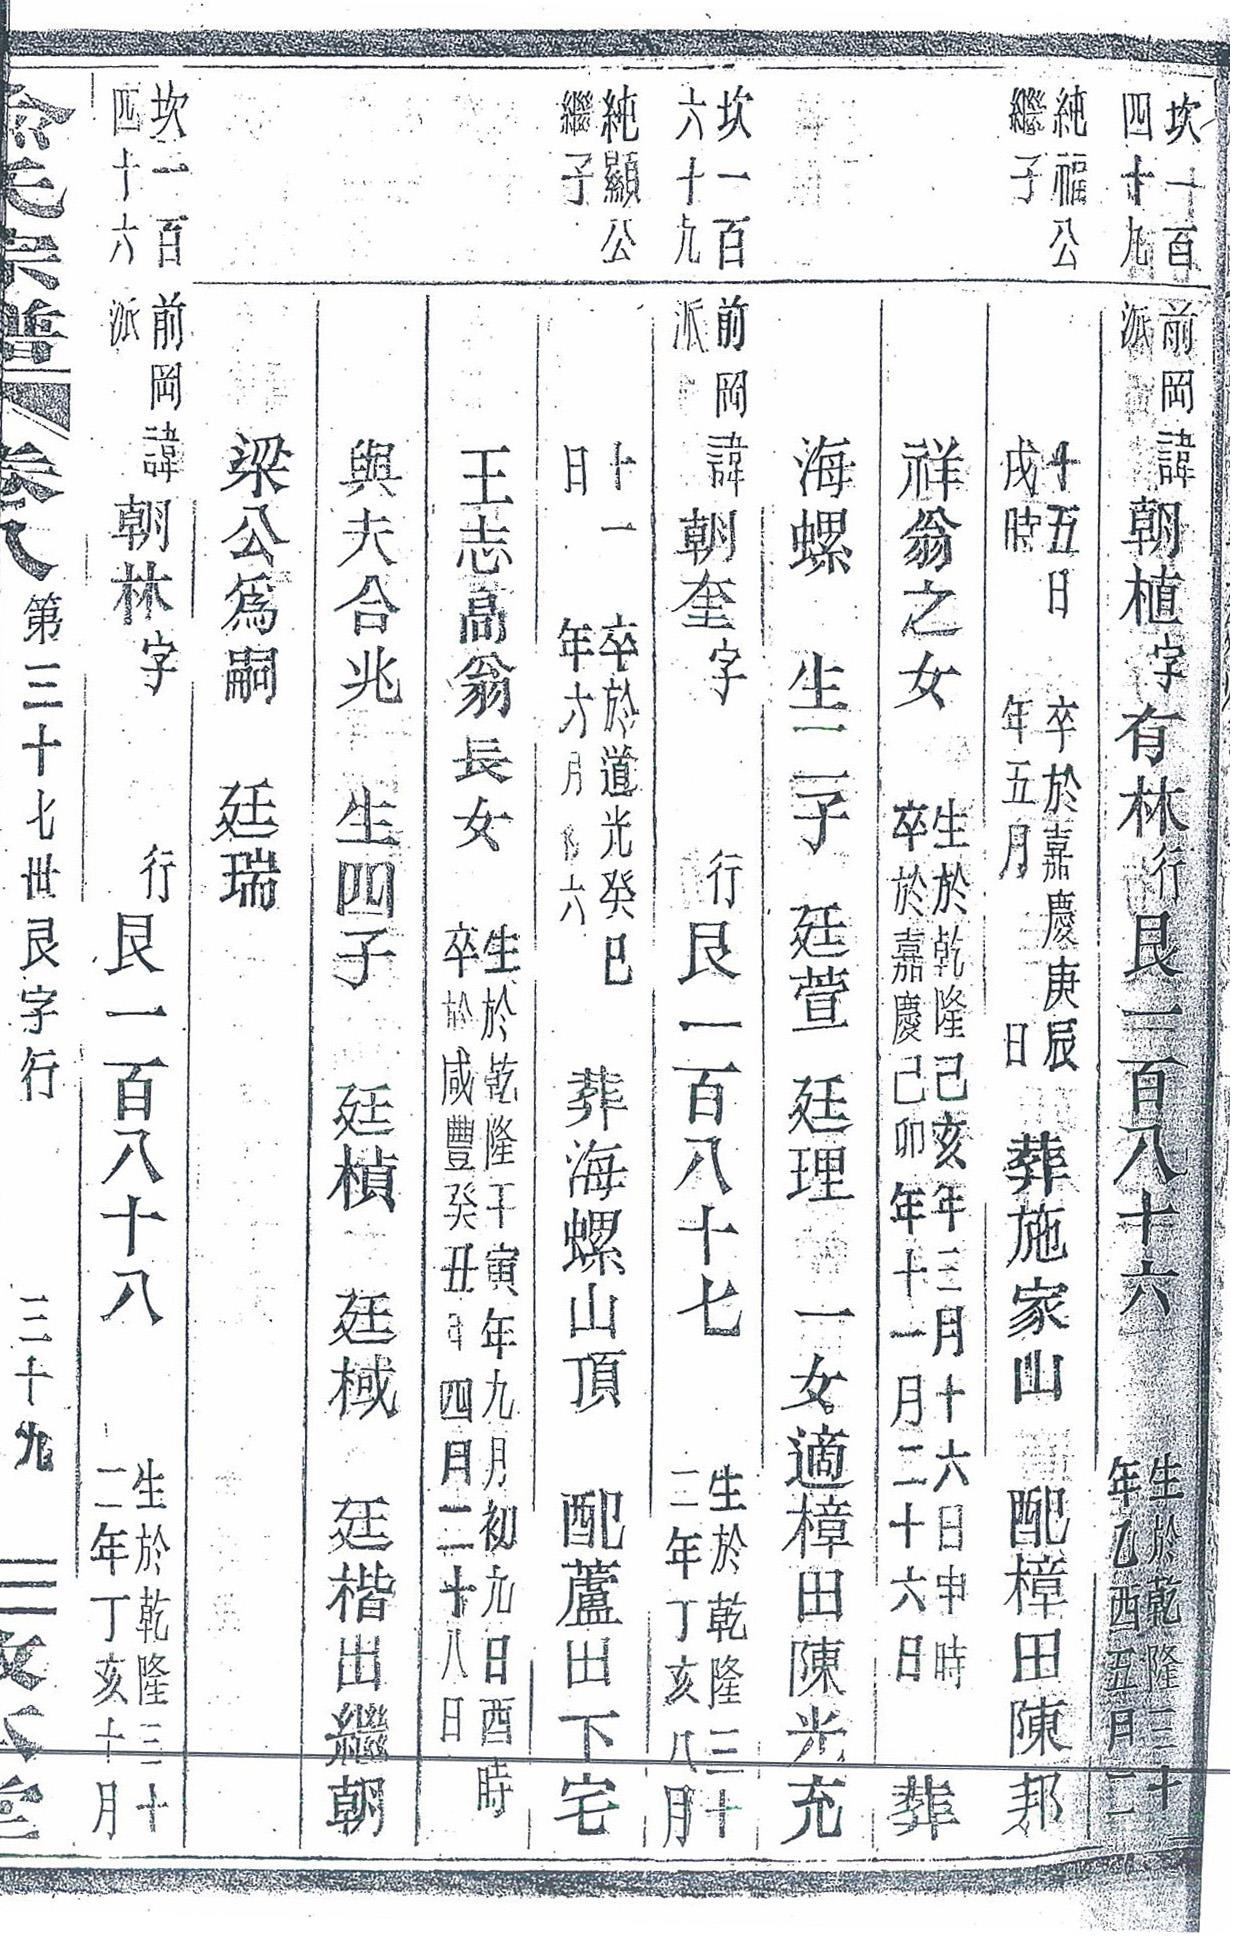 坎一百四十九
純福公繼子
坎一百六十九
純顯公繼子
坎一百四十六
前岡派諱朝植字有林行艮一百八十六 生於乾隆三十年乙酉五月二
十五日戌時 卒於嘉慶庚辰年五月 日 葬施家山 配樟田陳邦
祥翁之女 生於乾隆己亥年三月十六日申時 卒於嘉慶己卯年十一月二十六日 葬
海螺 生二子 廷萱 廷理 一女適樟田陳光充
前岡派諱朝奎字 行艮一百八十七 生於乾隆三十二年丁亥八月
十一日 卒於道光癸巳年六月 六 葬海螺山頂 配蘆田下宅
王志高翁長女 生於乾隆壬寅年九月初九日酉時 卒於咸豐癸丑 四日二十八日
與夫合兆 生四子 廷楨 廷棫 廷楷出繼朝
梁公爲嗣 廷瑞
前岡派諱朝林字 行艮一百八十八 生於乾隆三十二年丁亥十月
氏宗譜 卷八 第三十七世艮字行 三十九 堂